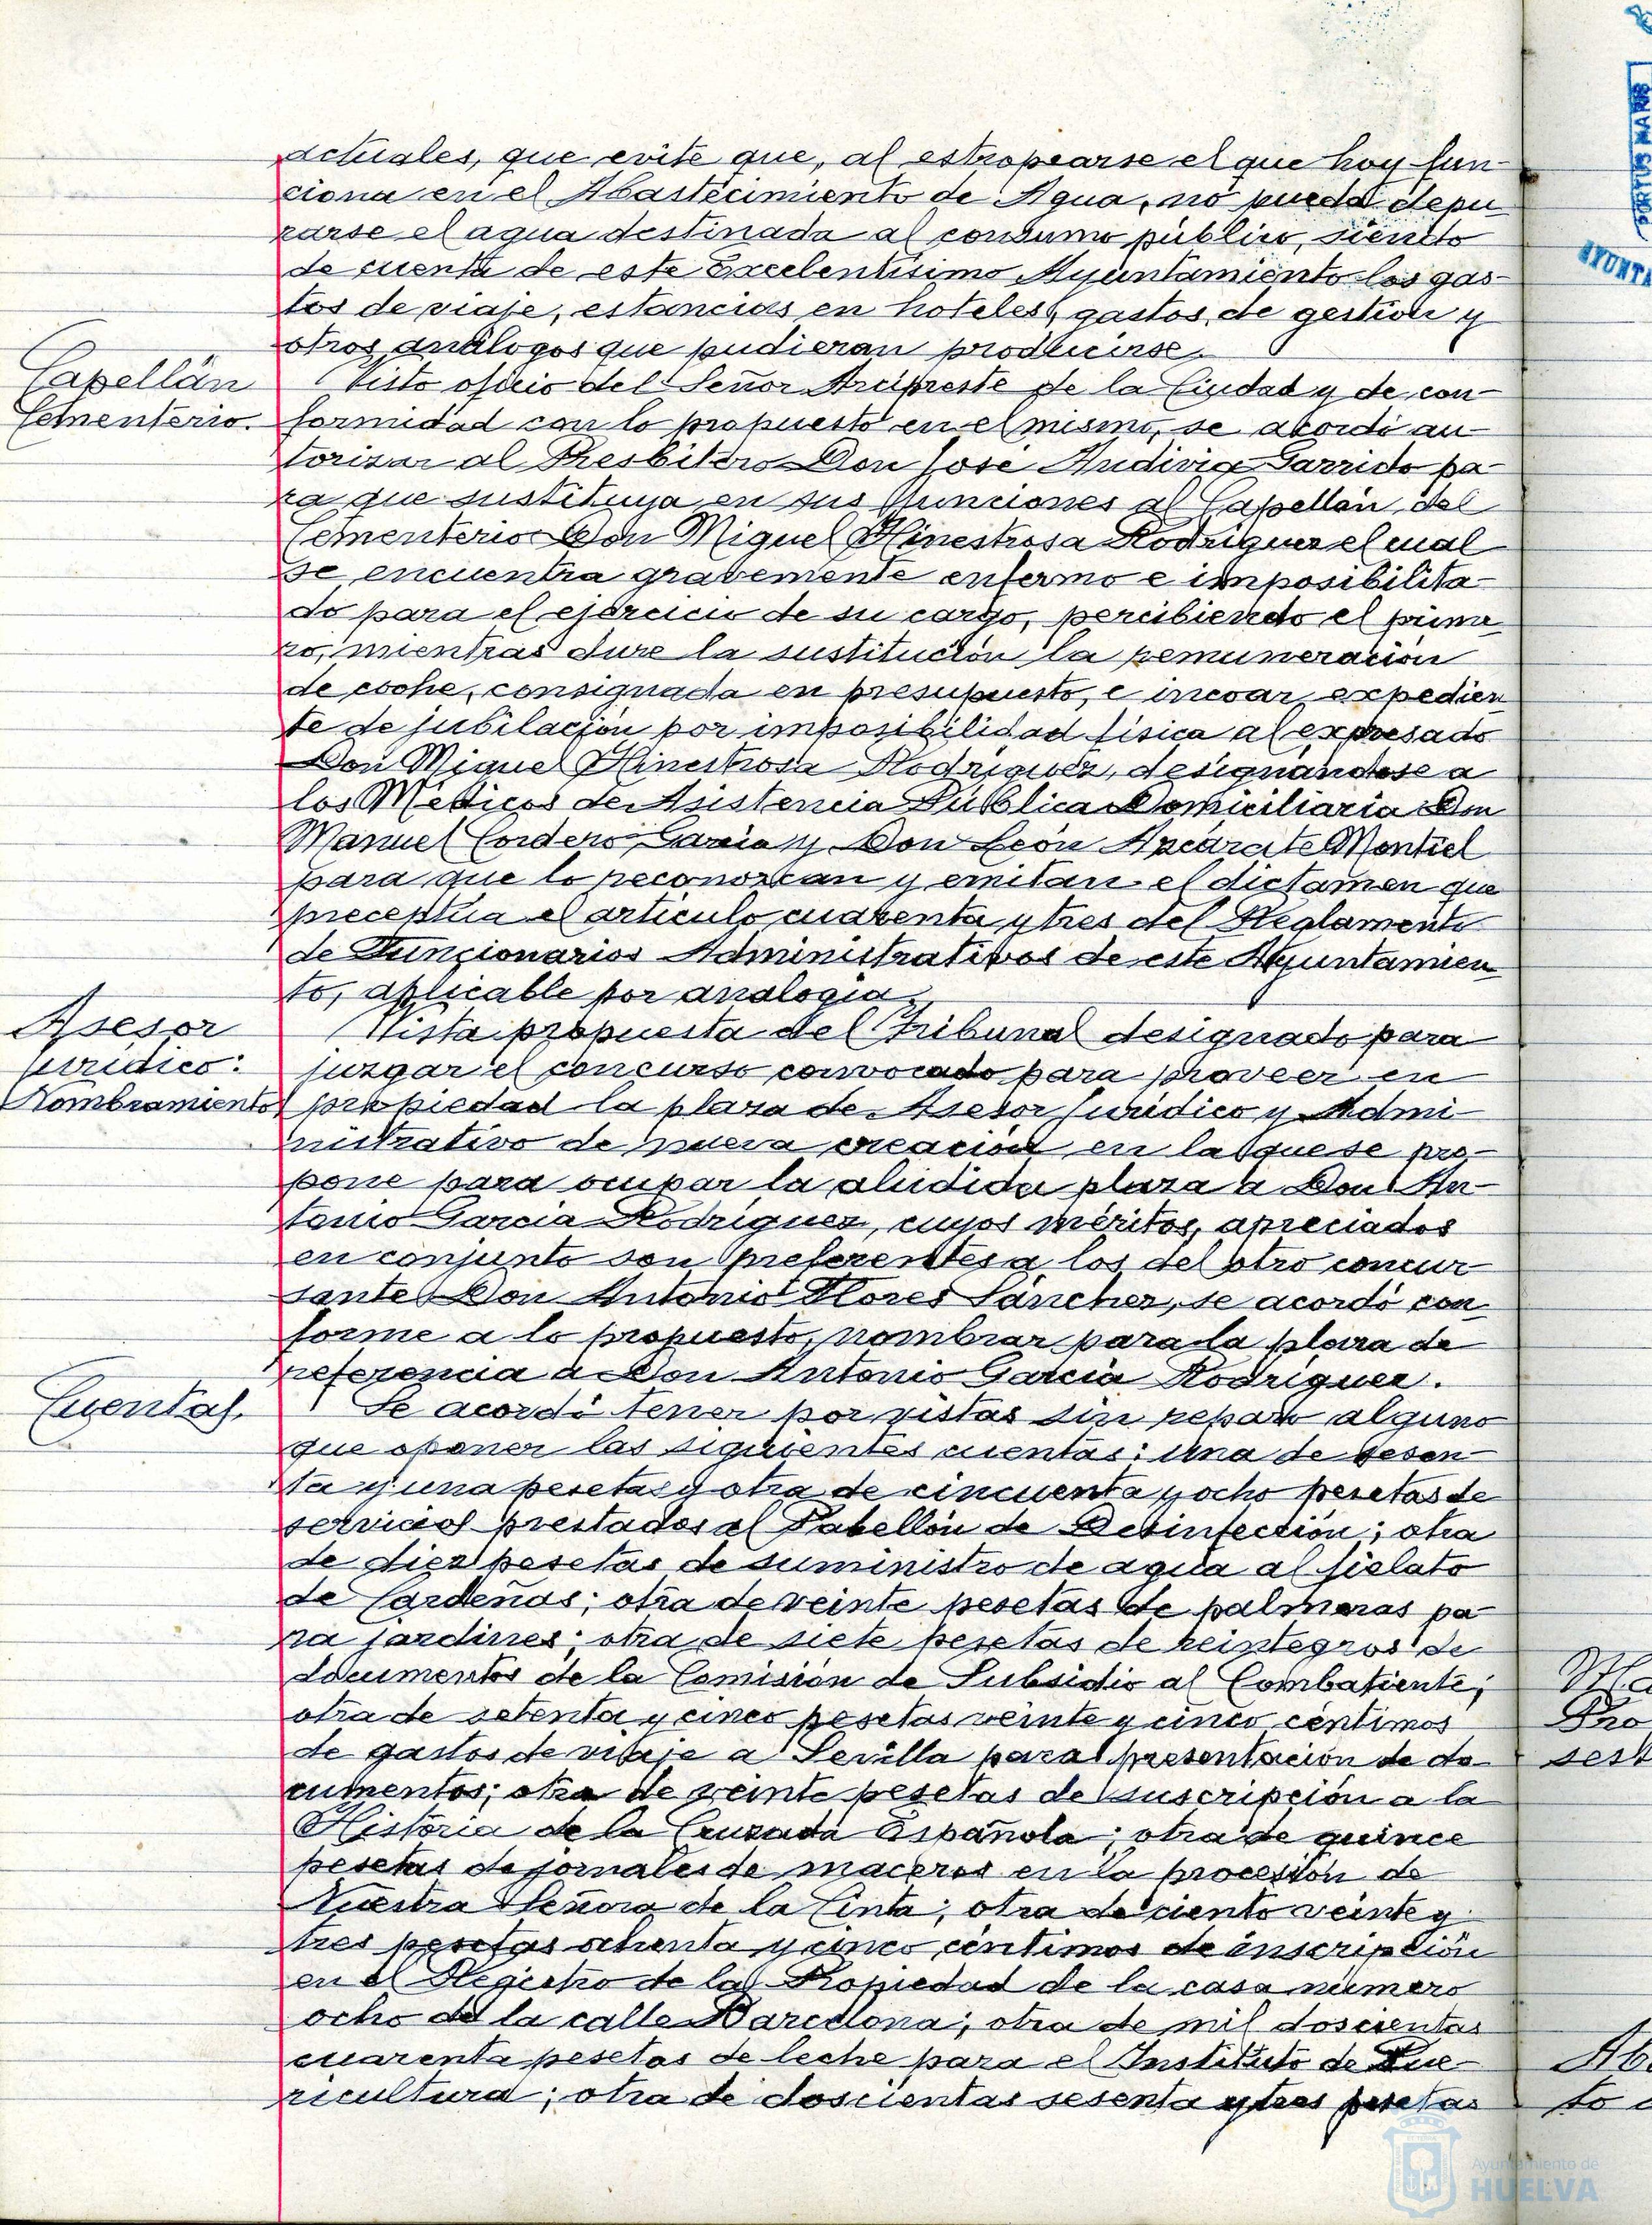 actuales, que evite que, al estropearse el que hoy fun-
ciona en el Abastecimiento de Agua, no pueda depu-
rarse el agua destinada al consumo público, siendo
de cuenta de este Excelentísimo Ayuntamiento los gas-
tos de viaje, estancias en hoteles, gastos de gestión y
otros análogos que pudieran producirse.
Capellán
Cementerio.
Visto oficio del Señor Arcipreste de la Ciudad y de con-
formidad con lo propuesto en el mismo, se acordó au-
torizar al Presbítero Don José Andivia Garrido pa-
ra que sustituya en sus funciones al Capellán del
Cementerio Don Miguel Hinestrosa Rodríguez el cual
se encuentra gravemente enfermo e imposibilita-
do para el ejercicio de su cargo, percibiendo el prime
ro, mientras dure la sustitución la remuneración
de coche, consignada en presupuesto, e incoar expedien
te de jubilación por imposibilidad física al expresado
Don Miguel Hinestrosa Rodríguez, designándose a
los Médicos de Asistencia Pública Domiciliaria Don
Manuel Cordero García y Don León Azcárate Montiel
para que lo reconozcan y emitan el dictamen que
preceptúa el artículo cuarenta y tres del Reglamento
de Funcionarios Administrativos de este Ayuntamien
to, aplicable por analogía.
Asesor
Jurídico:
Nombramiento
Vista propuesta del Tribunal designado para
juzgar el concurso convocado para proveer en
propiedad la plaza de Asesor Jurídico y Admi-
nistrativo de nueva creación en la que se pro-
pone para ocupar la aludida plaza a Don An-
tonio García Rodríguez, cuyos méritos, apreciados
en conjunto son preferentes a los del otro concur-
sante Don Antonio Flores Sánchez, se acordó con-
forme a lo propuesto, nombrar para la plaza de
referencia a Don Antonio García Rodríguez.
Cuentas.
Se acordó tener por vistas sin reparo alguno
que oponer las siguientes cuentas: una de sesen-
ta y una pesetas y otra de cincuenta y ocho pesetas de
servicios prestados al Pabellón de Desinfección; otra
de diez pesetas de suministro de agua al fielato
de Cardeñas; otra de veinte pesetas de palmeras pa-
ra jardines; otra de siete pesetas de reintegros de
documentos de la Comisión de Subsidio al Combatiente;
otra de setenta y cinco pesetas veinte y cinco céntimos
de gastos de viaje a Sevilla para presentación de do-
cumentos; otra de veinte pesetas de suscripción a la
Historia de la Cruzada Española; otra de quince
pesetas de jornales de maceros en la procesión de
Nuestra Señora de la Cinta; otra de ciento veinte y
tres pesetas ochenta y cinco céntimos de inscripción
en el Registro de la Propiedad de la casa número
ocho de la calle Barcelona; otra de mil doscientas
cuarenta pesetas de leche para el Instituto de Pue-
ricultura; otra de doscientas sesenta y tres pesetas
PORTUS MARIS
AYUNTA
Ayuntamiento de
HUELVA